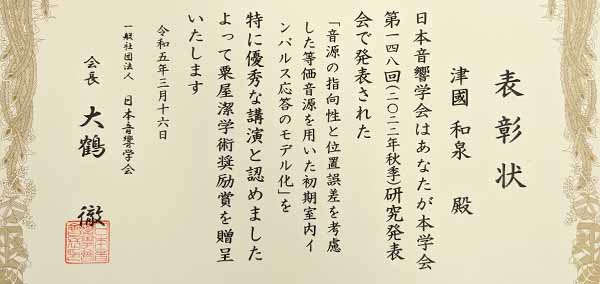 表彰状
津國 和泉 殿
日本音響学会はあなたが本学会
第一四八回(二〇二二年秋季)研究発表
会で発表された
「音源の指向性と位置誤差を考慮
した等価音源を用いた初期室内イ
ンパルス応答のモデル化」を
特に優秀な講演と認めました
よって粟屋潔学術奨励賞を贈呈
いたします
令和五年三月十六日
一般社団法人 日本音響学会
会長 大鶴 徹